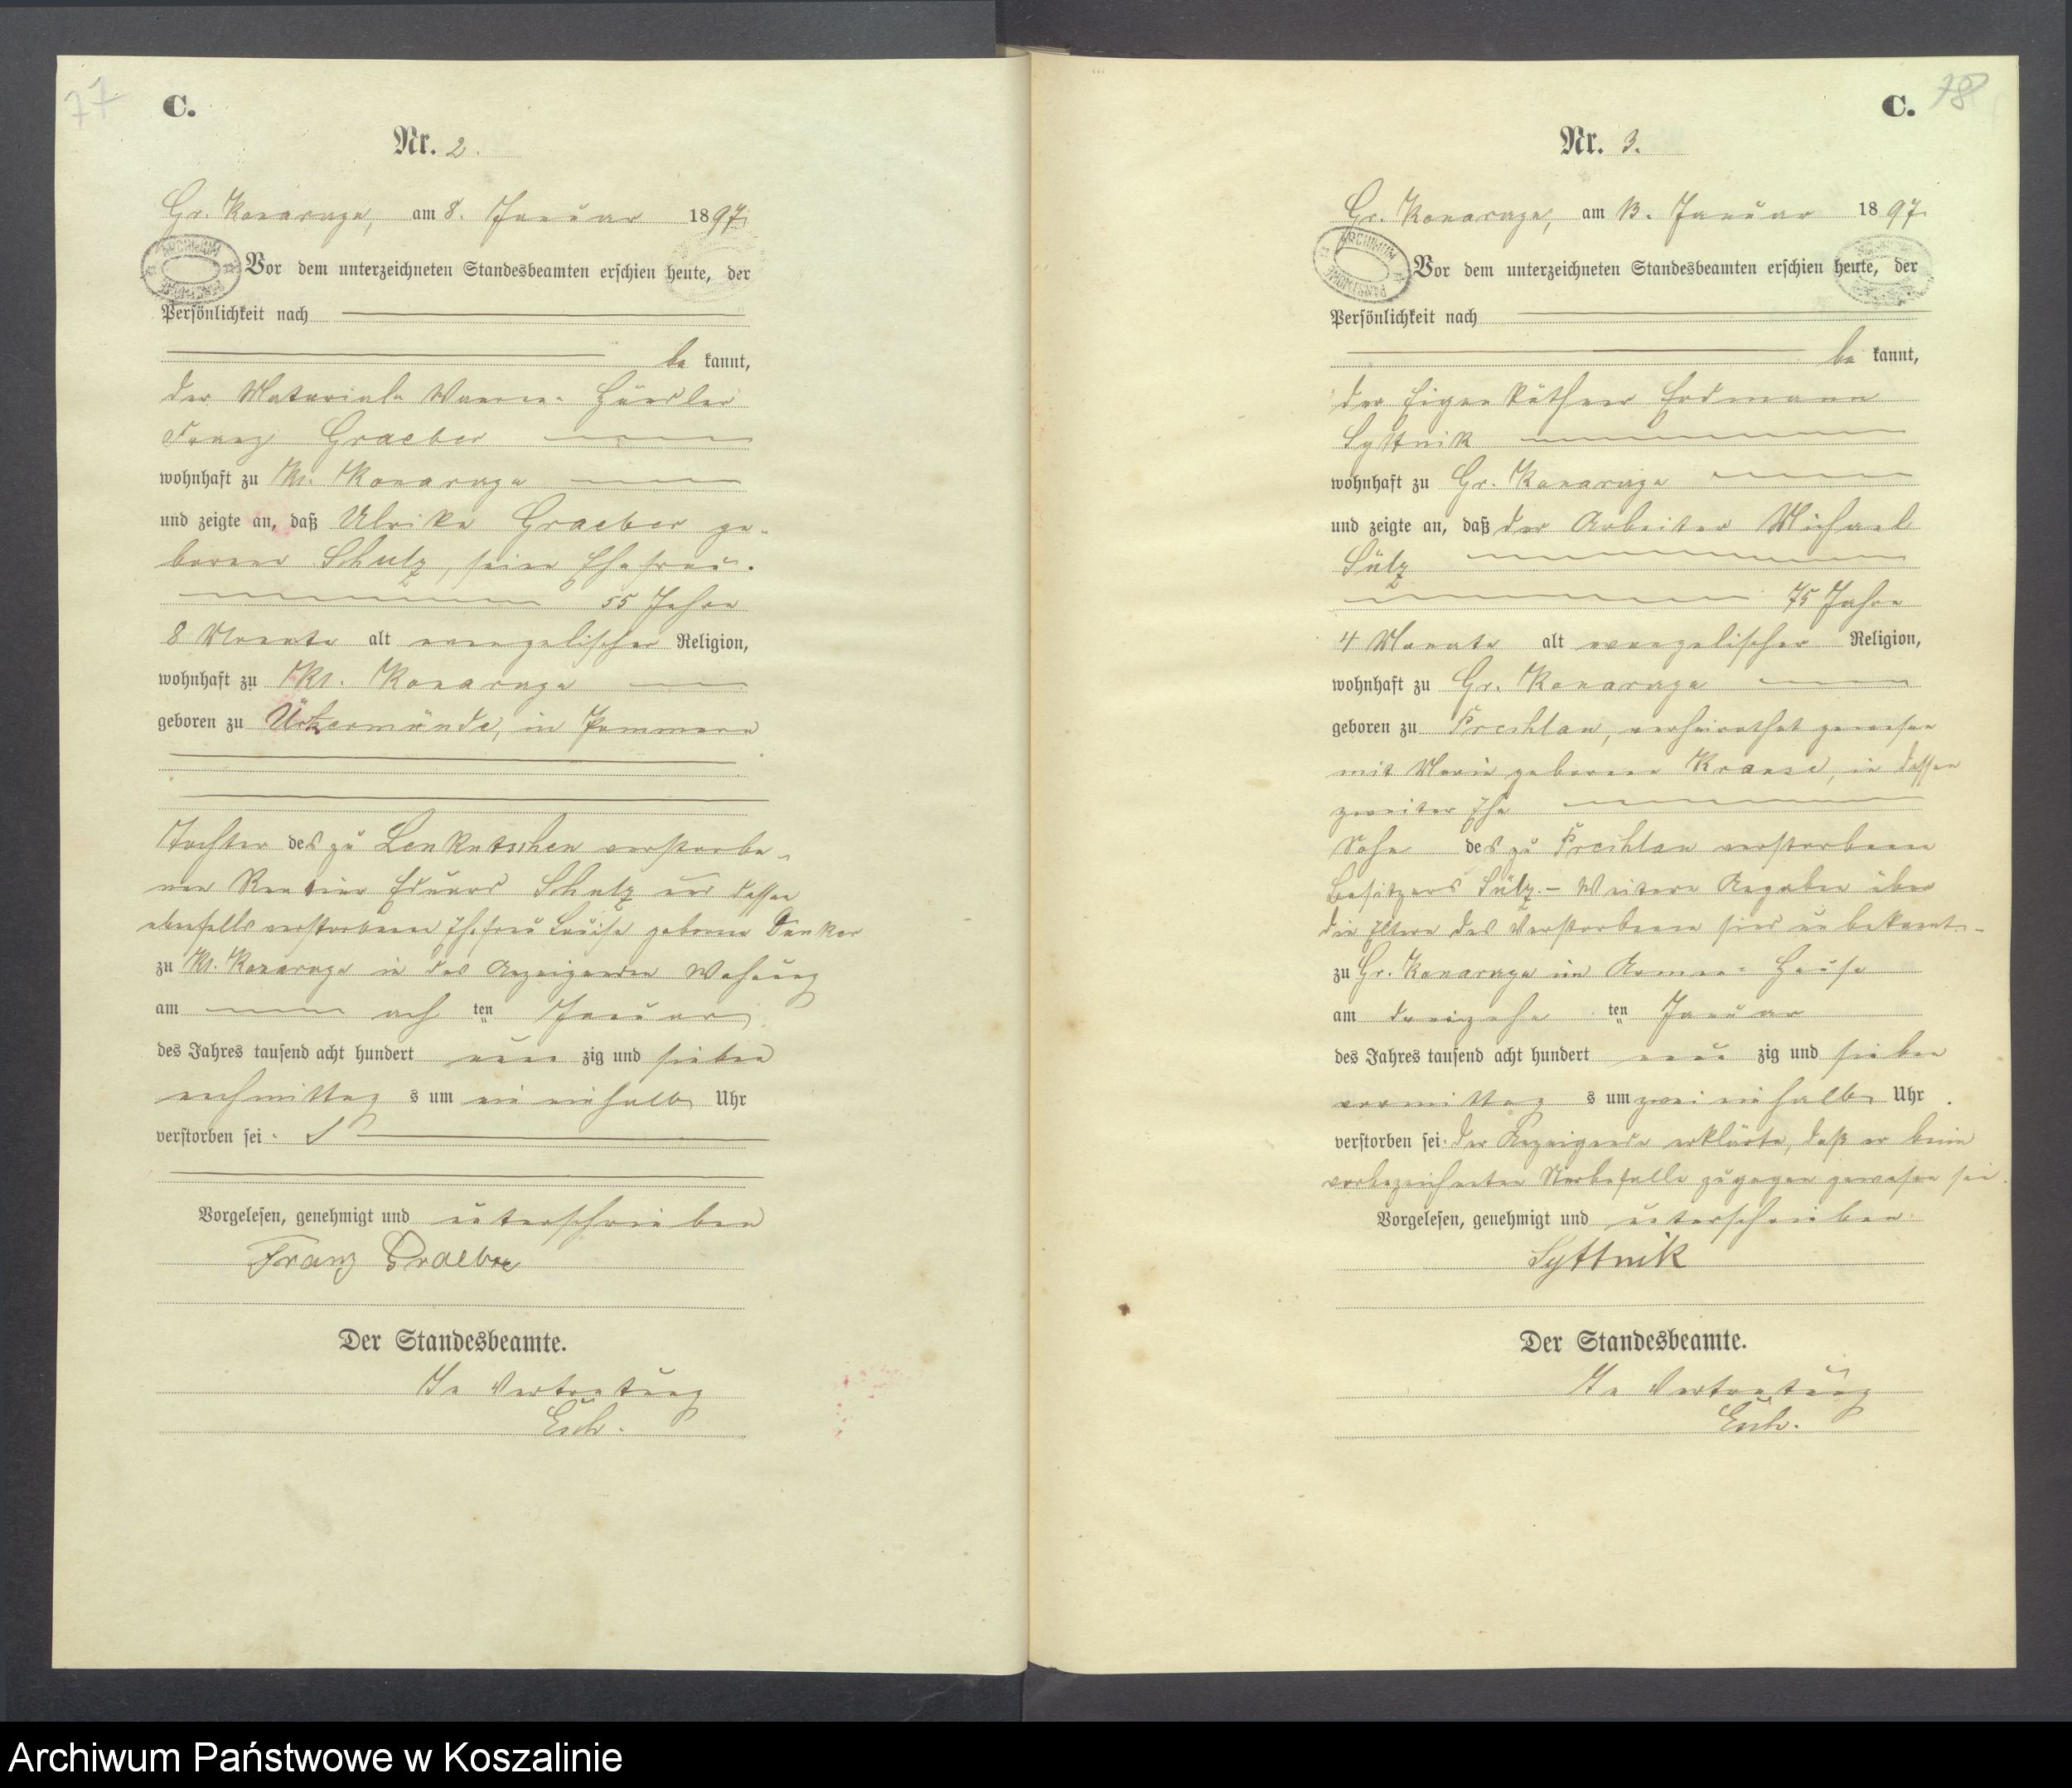 77
C.
Nr. 2.
Gr. Konarzyn, am 8. Januar 1897.
ARCHIWUM
Vor dem unterzeichneten Standesbeamten erschien heute, der
Persönlichkeit nach
be kannt,
der Material-Waaren-Händler
Franz Graeber
wohnhaft zu Kl. Konarzyn
und zeigte an, daß Ulrike Graeber ge-
borene Schulz, seine Ehefrau.
55 Jahre
8 Monate alt evangelischer Religion,
wohnhaft zu Kl. Konarzyn
geboren zu Ückermünde, in Pommern
Tochter des zu verstorbe-
nen Rentier Eduard Schulz und dessen
ebenfalls verstorbenen Ehefrau Louise geborene
zu Kl. Konarzyn in des Anzeigenden Wohnung
am ach ten Januar
des Jahres tausend acht hundert neun zig und sieben
nachmittag s um ein einhalb Uhr
verstorben sei.
Vorgelesen, genehmigt und unterschrieben
Franz Graeber
Der Standesbeamte.
In Vertretung
78
C.
Nr. 3.
Gr. Konarzyn, am 13. Januar 1897.
ARCHIWUM
Vor dem unterzeichneten Standesbeamten erschien heute, der
Persönlichkeit nach
be kannt,
der Eigenkäthner Erdmann
Syttnik
wohnhaft zu Gr. Konarzyn
und zeigte an, daß der Arbeiter Michael
Sülz
75 Jahre
4 Monate alt evangelischer Religion,
wohnhaft zu Gr. Konarzyn
geboren zu Prechlau, verheirathet gewesen
mit Marie geborene Krause, in dessen
zweiter Ehe
Sohn des zu Prechlau verstorbenen
Besitzers Sülz. – Weitere Angaben über
die Eltern des Verstorbenen sind unbekannt. –
zu Gr. Konarzyn im Armen-Hause
am dreizehn ten Januar
des Jahres tausend acht hundert neun zig und sieben
vormittag s um zwei einhalb Uhr
verstorben sei. Der Anzeigende erklärte, daß er beim
vorbezeichneten Sterbefalle zugegen gewesen sei.
Vorgelesen, genehmigt und unterschrieben.
Syttnik
Der Standesbeamte.
In Vertretung
Archiwum Państwowe w Koszalinie